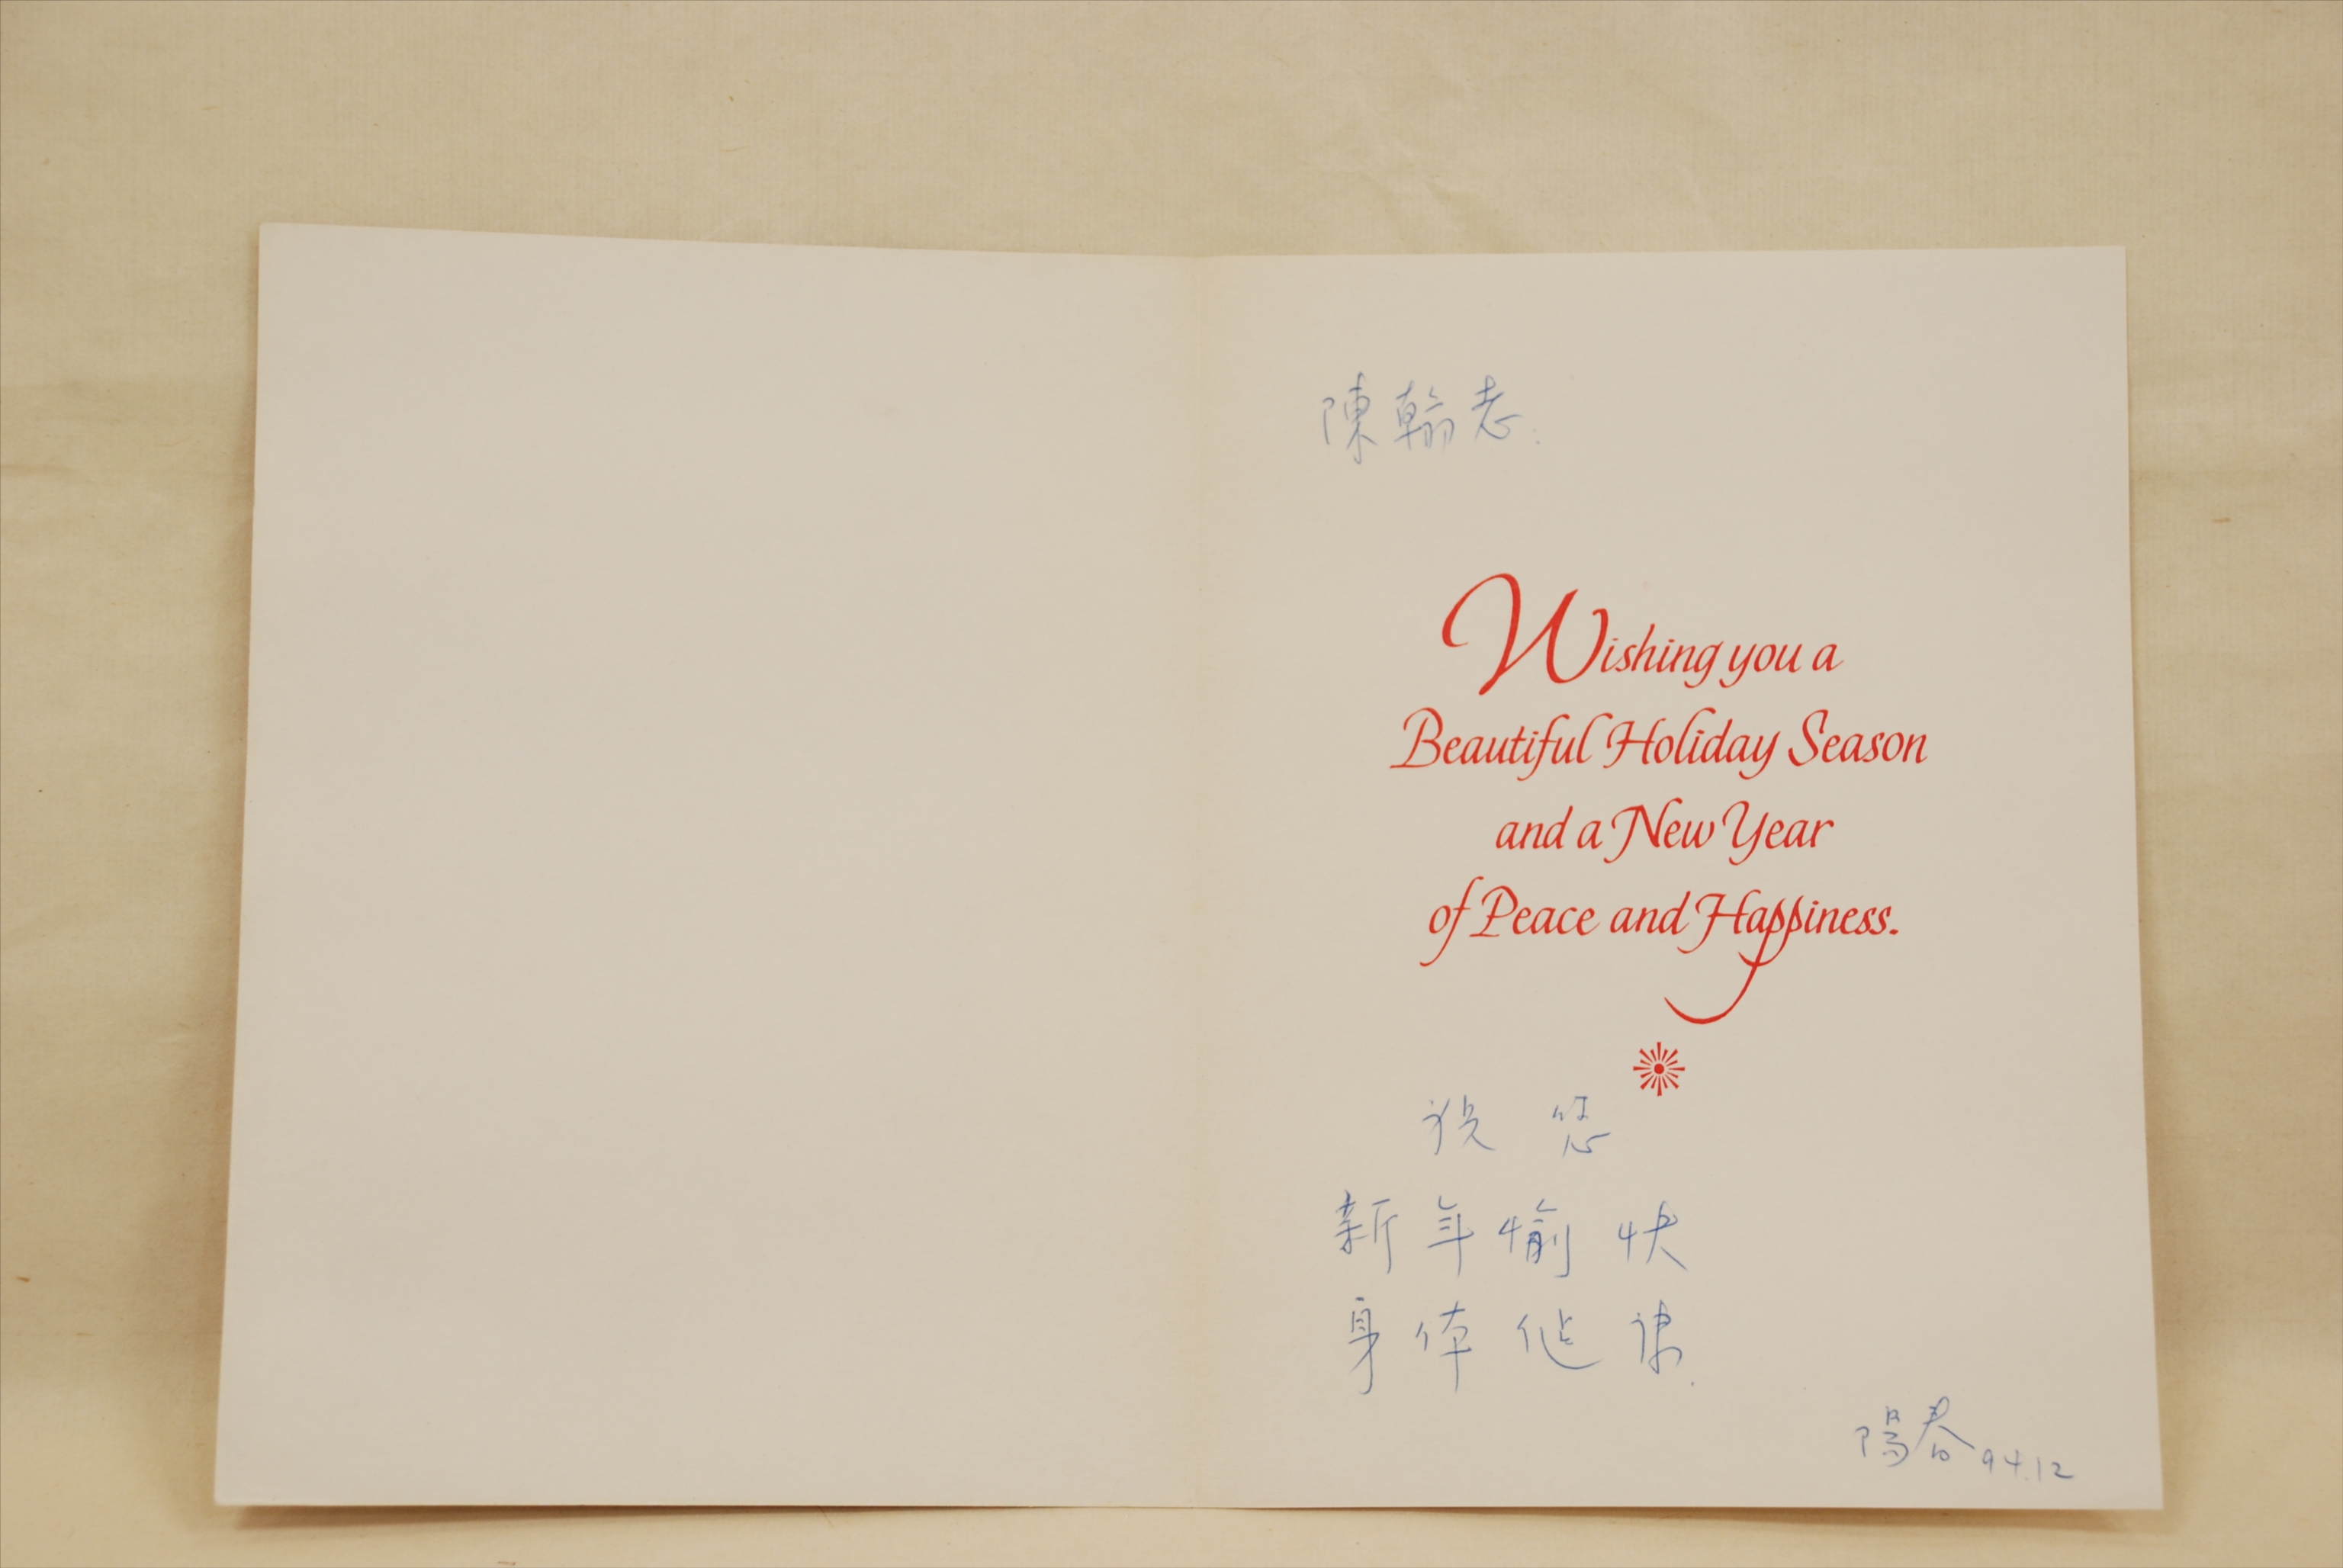 陳翰老:
Wishing you a
Beautiful Holiday Season
and a New Year
of Peace and Happiness.
祝 您
新年愉快
身体健康.
陽春 94.12